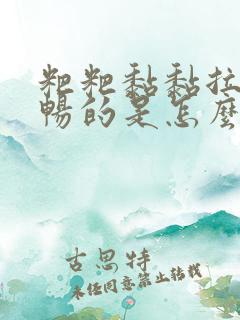 粑粑黏黏拉
暢的是怎麼
古思特
未经同意禁止转载